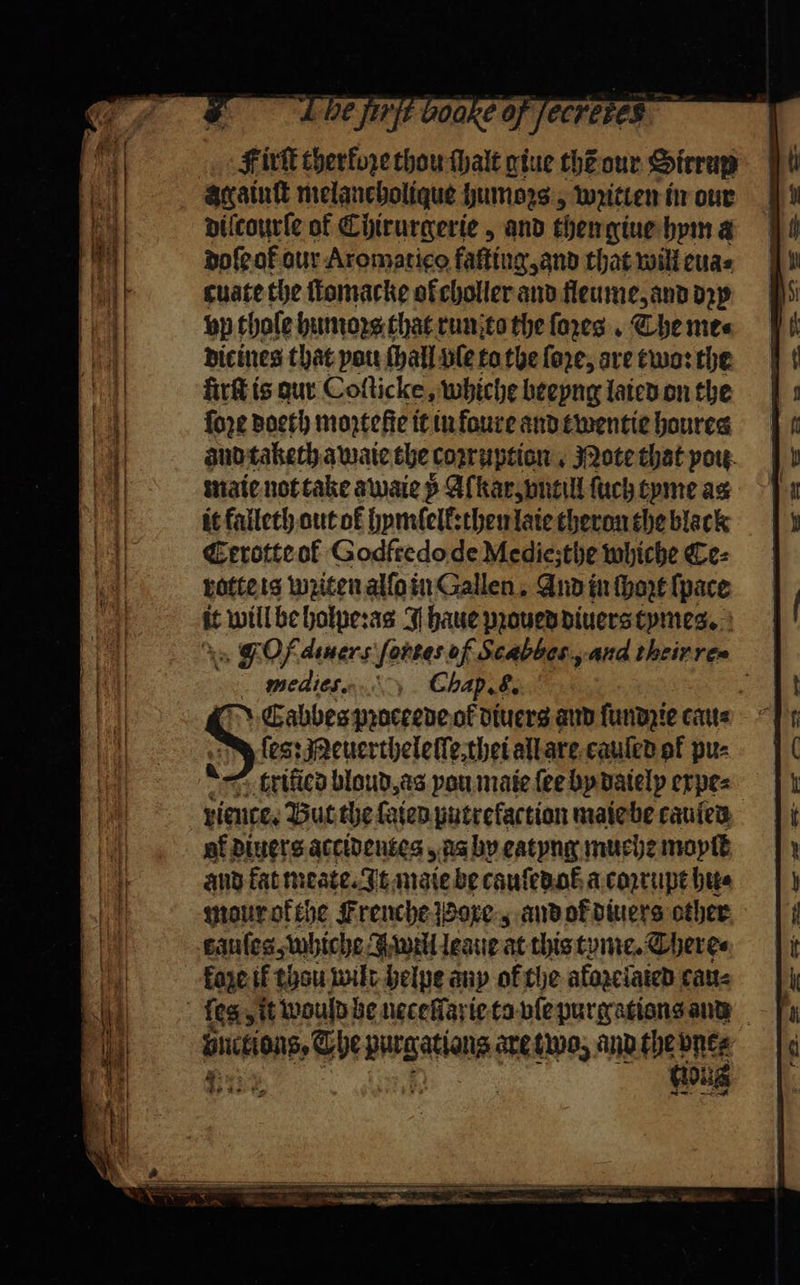 The first booke of secretes
First therfore thou shalt giue thē our Sirrup
against melancholique humors, written in our
discourse of Chirurgerie, and then giue hym a
dose of our Aromatico fasting, and that will eua-
cuate the stomacke of choller and fleume, and dry
vp those humors that run to the sores. The me-
dicines that you shall vse to the sore, are two: the
first is our Costicke, whiche beeyng laied on the
sore doeth mortefie it in foure and twentie houres
and taketh awaie the corruption. Note that you
maie not take awaie þe Askar, vntill such tyme as
it falleth out of hymself: then laie theron the black
Cerotte of Godfredo de Medic; the whiche Ce-
rotte is writen also in Gallen. And in short space
it will be holpe: as I haue proued diuers tymes.
¶ Of diuers sortes of Scabbes, and their re-
medies. Chap. 8.
SCabbes proceede of diuers and sundrie cau-
ses: Neuerthelesse, thei all are caused of pu-
trified bloud, as you maie see by daiely expe-
rience. But the saied putrefaction maie be caused
of diuers accidentes, as by eatyng muche moyst
and fat meate. It maie be caused of a corrupt hu-
mour of the Frenche Poxe, and of diuers other
causes, whiche I will leaue at this tyme. There-
fore if thou wilt helpe any of the aforesaied cau-
ses, it would be necessarie to vse purgations and
vnctions. The purgations are two, and the vnc-
tions